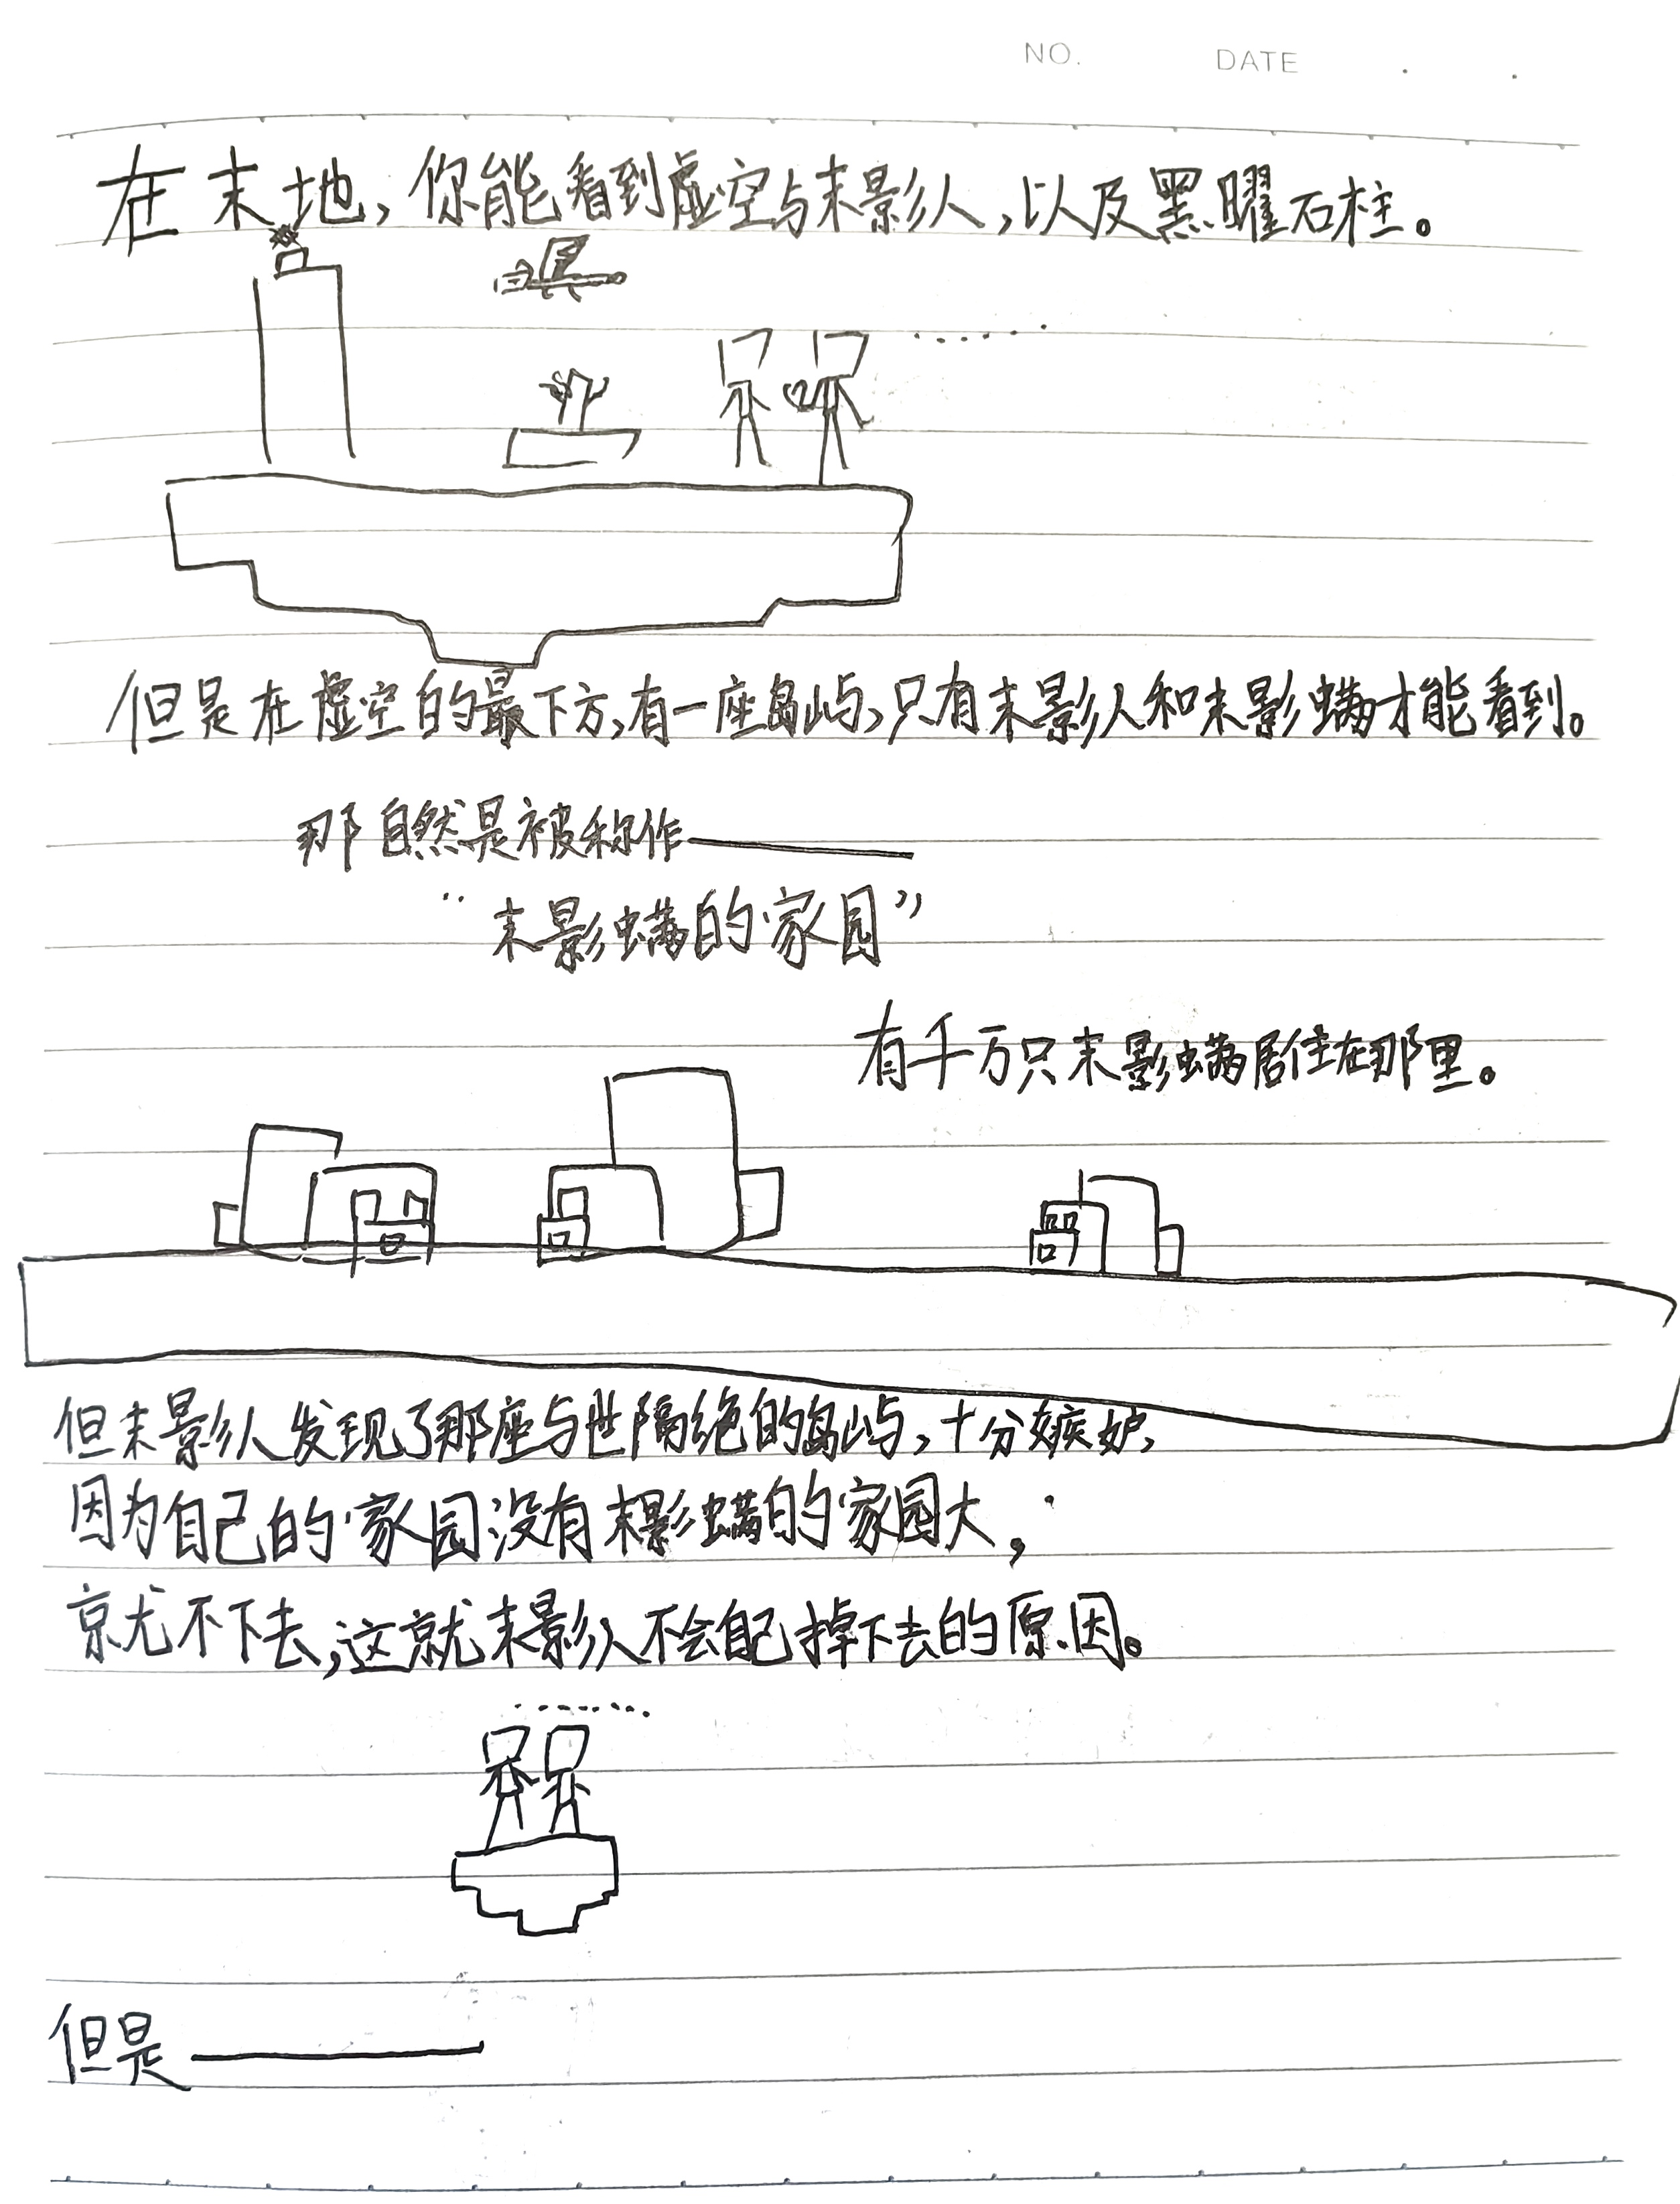 NO. DATE . .
在末地，你能看到虚空与末影人，以及黑曜石柱。
......
但是在虚空的最下方，有一座岛屿，只有末影人和末影螨才能看到。
那自然是被称作——
“末影螨的家园”
有千万只末影螨居住在那里。
但末影人发现了那座与世隔绝的岛屿，十分嫉妒，
因为自己的家园没有末影螨的家园大，
就不下去，这就末影人不会自己掉下去的原因。
.......
但是——